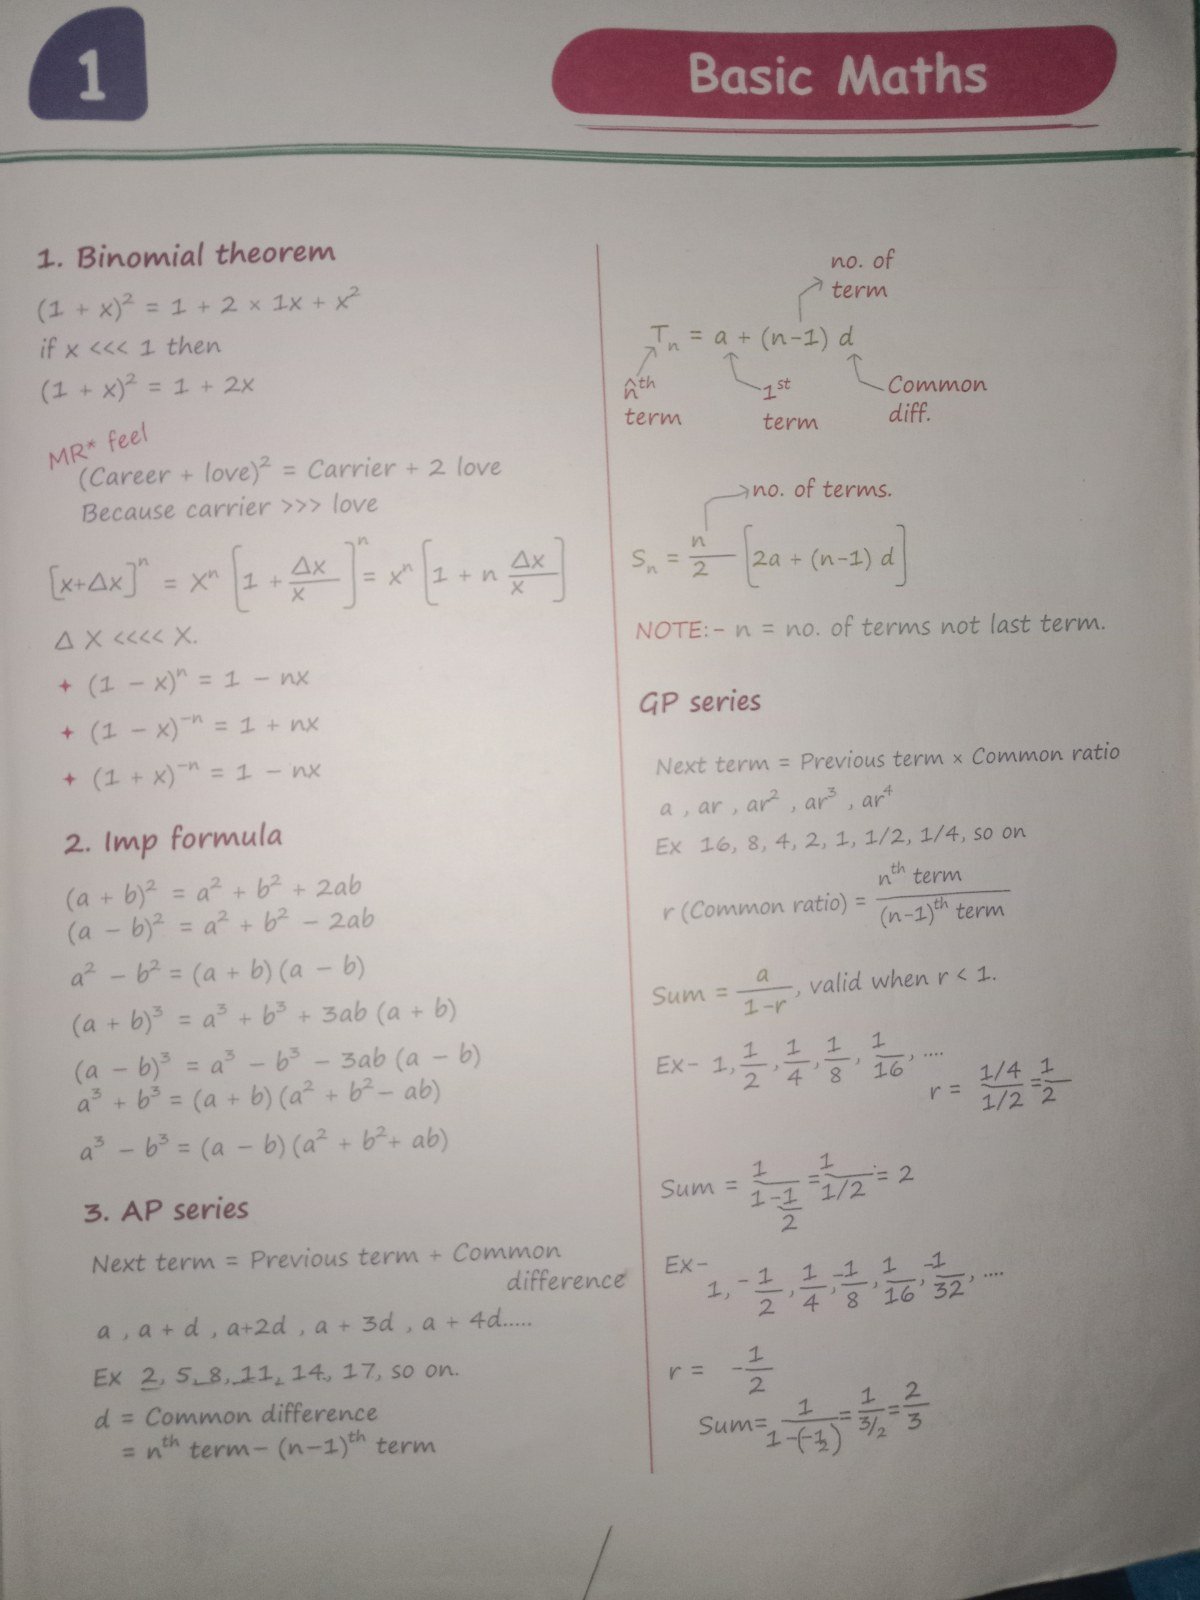 1
Basic Maths
1. Binomial theorem
(1 + x)² = 1 + 2 × 1x + x²
if x <<< 1 then
(1 + x)² = 1 + 2x
MR* feel
(Career + love)² = Carrier + 2 love
Because carrier >>> love
[x+Δx]ⁿ = Xⁿ [1 + Δx/x]ⁿ = xⁿ [1 + n Δx/x]
Δ X <<<< X.
✦ (1 − x)ⁿ = 1 − nx
✦ (1 − x)⁻ⁿ = 1 + nx
✦ (1 + x)⁻ⁿ = 1 − nx
2. Imp formula
(a + b)² = a² + b² + 2ab
(a − b)² = a² + b² − 2ab
a² − b² = (a + b) (a − b)
(a + b)³ = a³ + b³ + 3ab (a + b)
(a − b)³ = a³ − b³ − 3ab (a − b)
a³ + b³ = (a + b) (a² + b² − ab)
a³ − b³ = (a − b) (a² + b² + ab)
3. AP series
Next term = Previous term + Common
difference
a , a + d , a+2d , a + 3d , a + 4d.....
Ex 2, 5, 8, 11, 14, 17, so on.
d = Common difference
= nᵗʰ term− (n−1)ᵗʰ term
no. of
term
Tₙ = a + (n−1) d
n̂ᵗʰ
term
1ˢᵗ
term
Common
diff.
no. of terms.
Sₙ = n/2 [2a + (n−1) d]
NOTE:- n = no. of terms not last term.
GP series
Next term = Previous term × Common ratio
a , ar , ar² , ar³ , ar⁴
Ex 16, 8, 4, 2, 1, 1/2, 1/4, so on
r (Common ratio) = nᵗʰ term / (n−1)ᵗʰ term
Sum = a/(1−r), valid when r < 1.
Ex− 1, 1/2, 1/4, 1/8, 1/16, ....
r = (1/4)/(1/2) = 1/2
Sum = 1/(1−1/2) = 1/(1/2) = 2
Ex−
1, −1/2, 1/4, −1/8, 1/16, −1/32, ....
r = −1/2
Sum= 1/(1−(−1/2)) = 1/(3/2) = 2/3